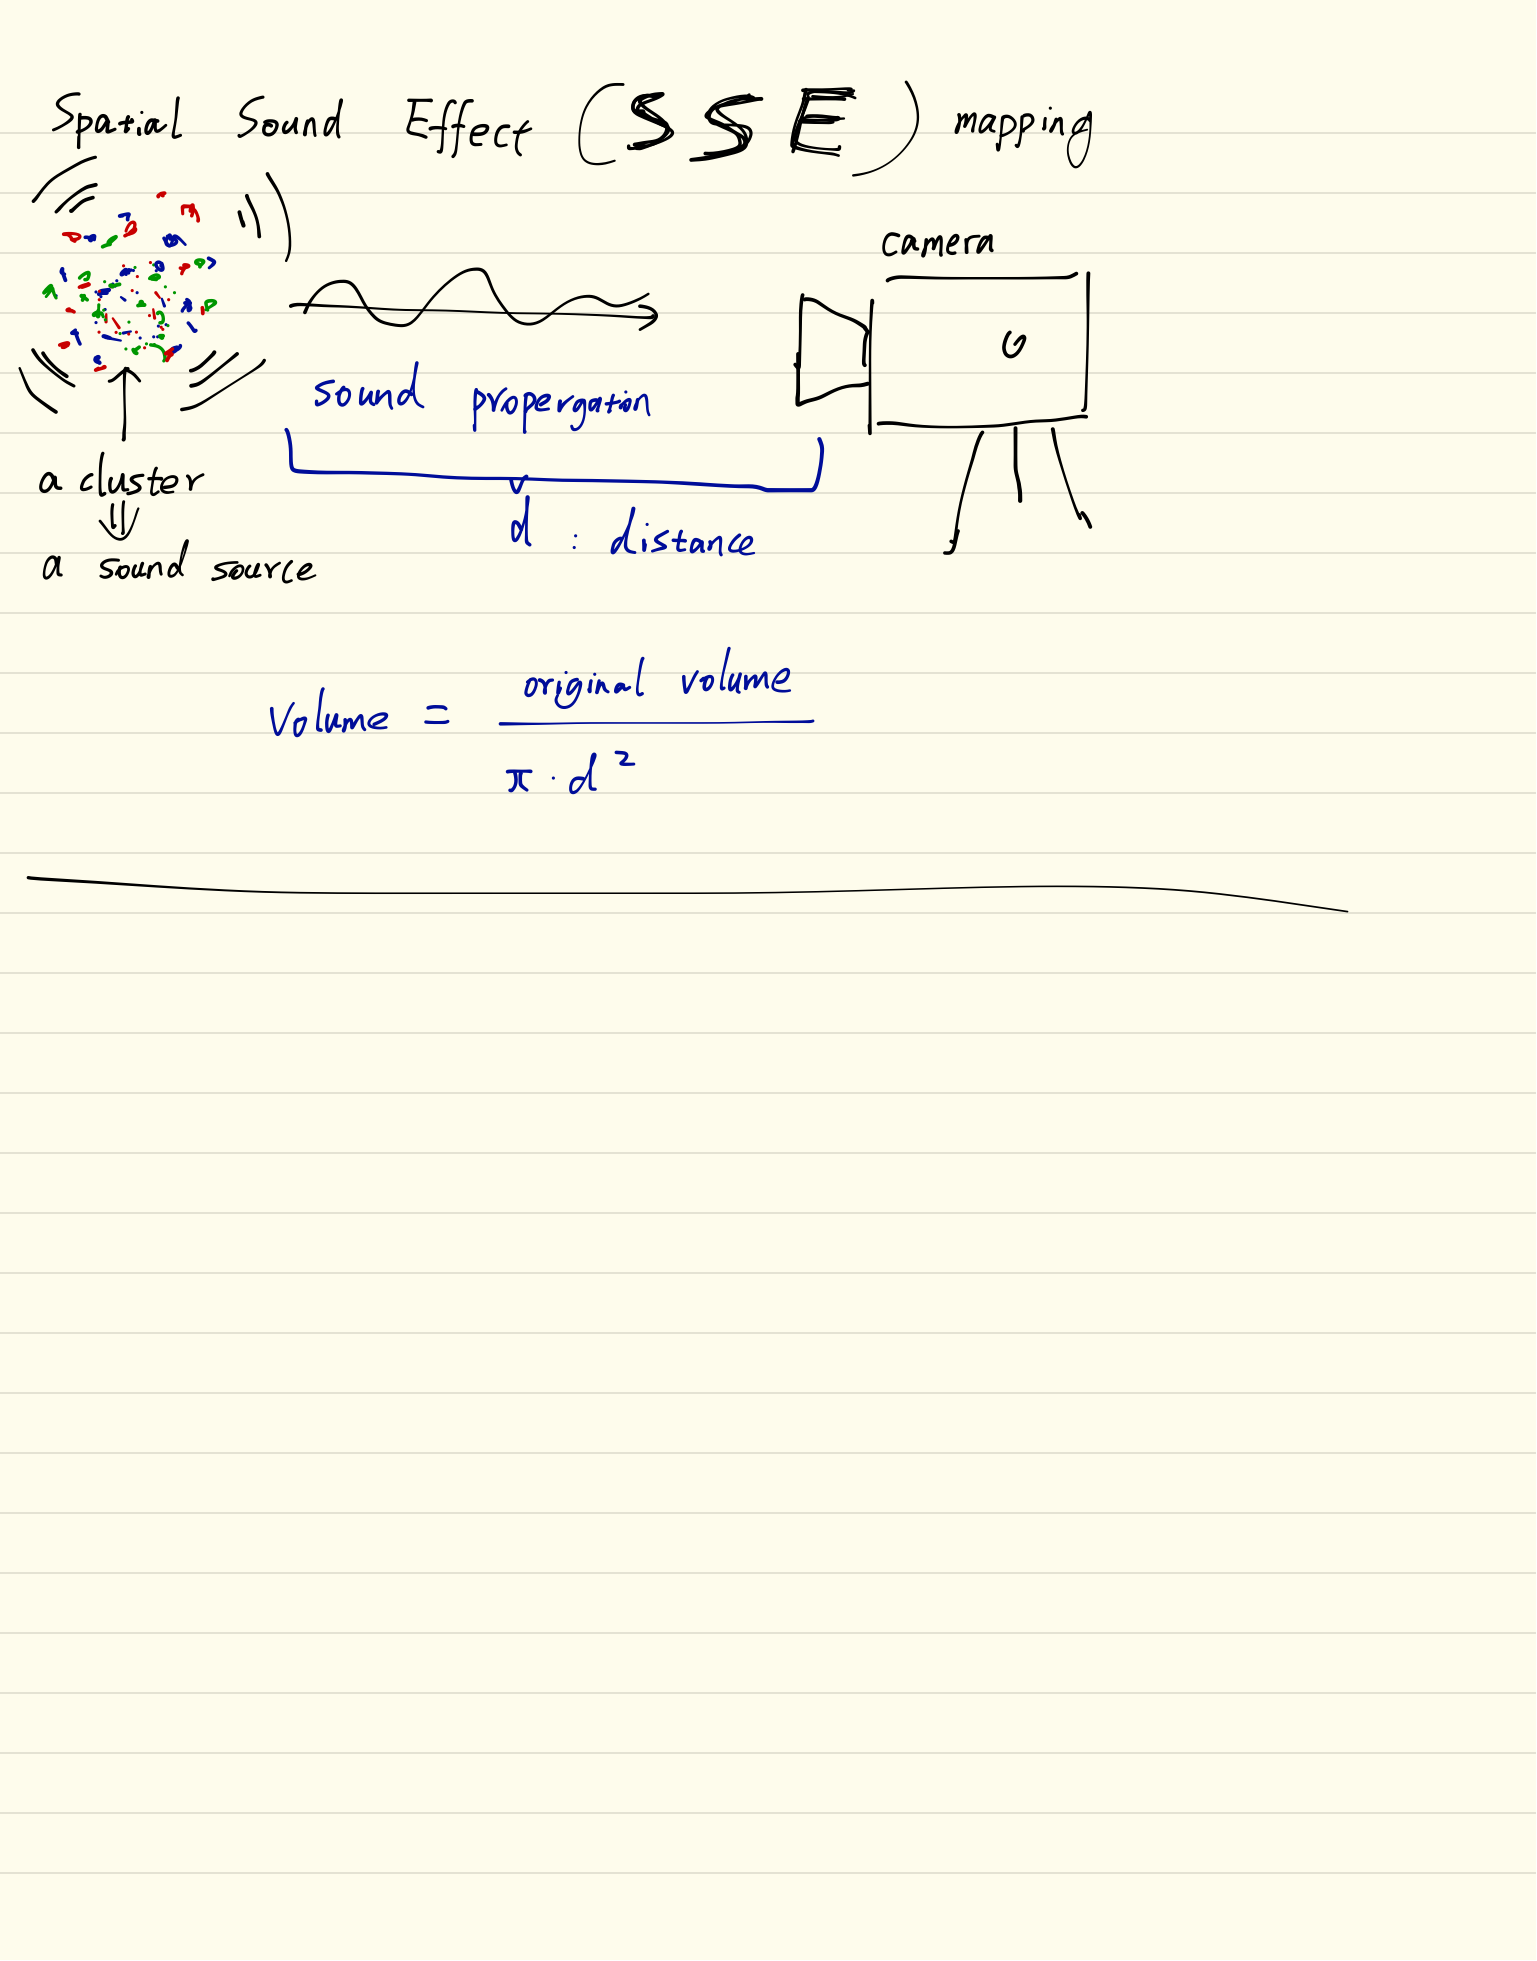 Spatial Sound Effect (SSE) mapping
camera
sound propergation
a cluster
d : distance
a sound source
Volume = original volume / π · d²